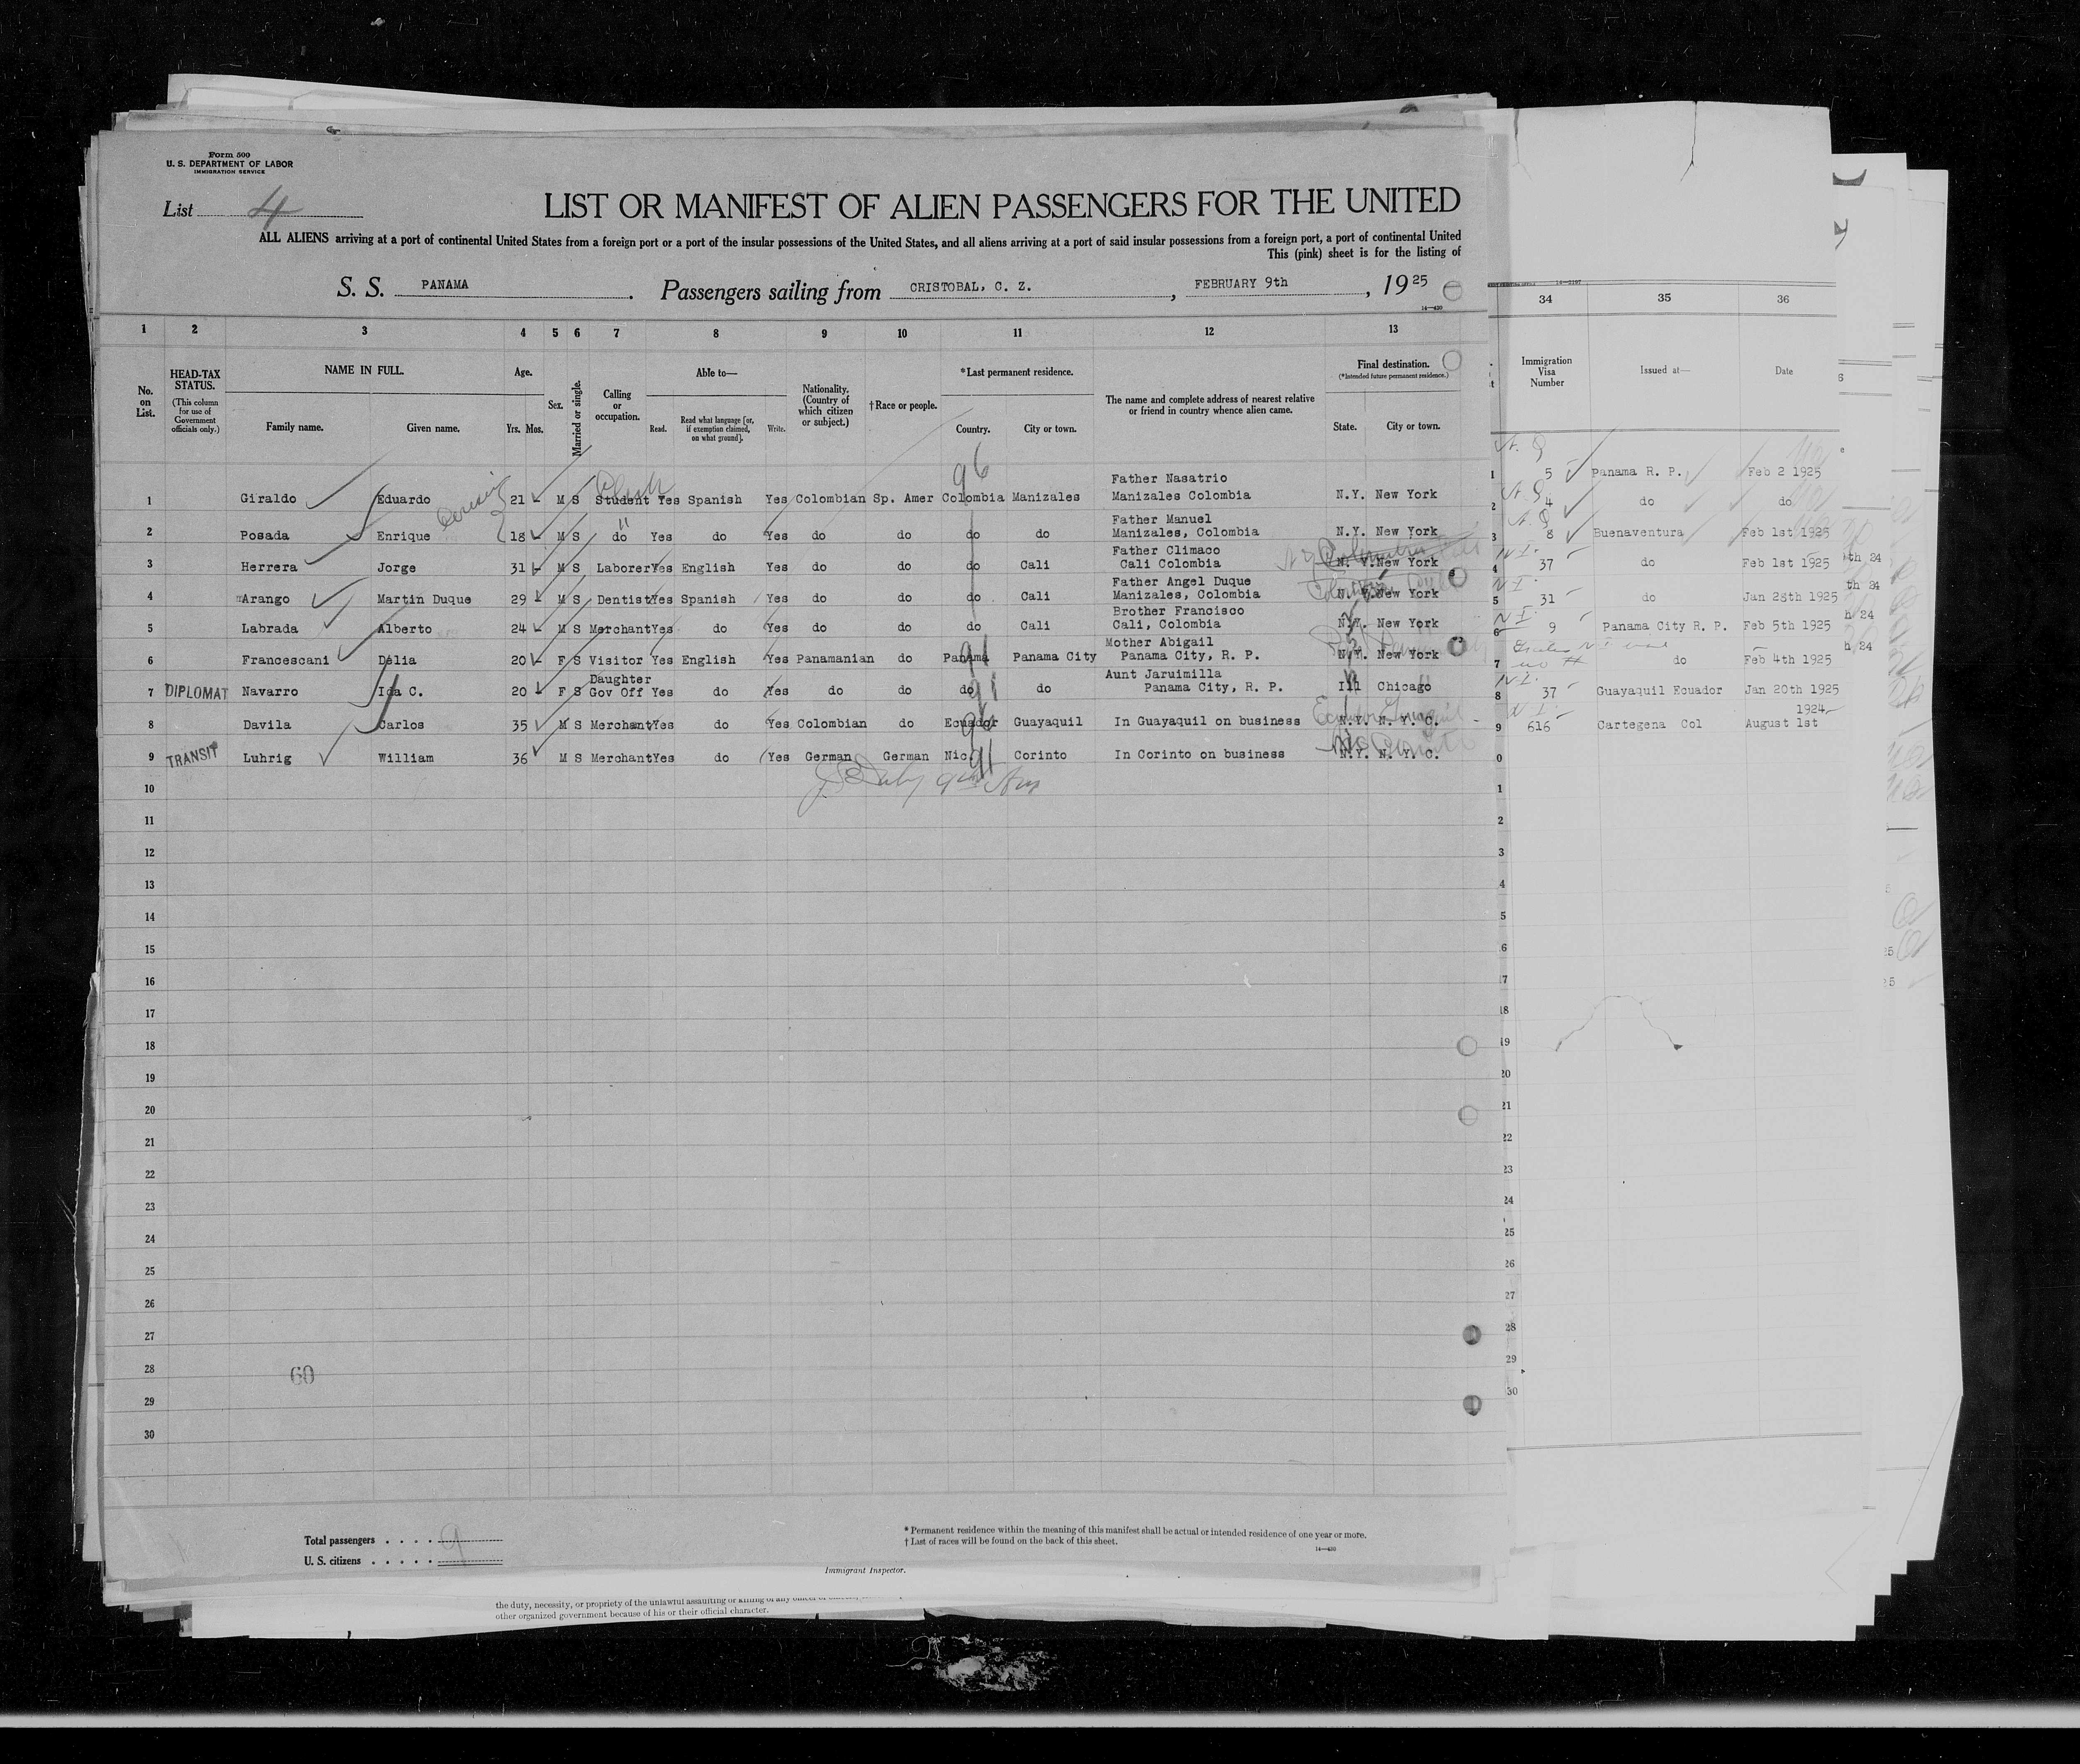 Form 500
U. S. DEPARTMENT OF LABOR
IMMIGRATION SERVICE
List 4
LIST OR MANIFEST OF ALIEN PASSENGERS FOR THE UNITED
ALL ALIENS arriving at a port of continental United States from a foreign port or a port of the insular possessions of the United States, and all aliens arriving at a port of said insular possessions from a foreign port, a port of continental United
This (pink) sheet is for the listing of
S. S. PANAMA. Passengers sailing from CRISTOBAL, C. Z., FEBRUARY 9th, 1925
14—430
1 2 3 4 5 6 7 8 9 10 11 12 13 34 35 36
No. on List.
HEAD-TAX STATUS.
(This column for use of Government officials only.)
NAME IN FULL.
Family name. Given name.
Age.
Yrs. Mos.
Sex.
Married or single.
Calling or occupation.
Able to—
Read. Read what language [or, if exemption claimed, on what ground]. Write.
Nationality. (Country of which citizen or subject.)
†Race or people.
*Last permanent residence.
Country. City or town.
The name and complete address of nearest relative or friend in country whence alien came.
Final destination.
(*Intended future permanent residence.)
State. City or town.
Immigration Visa Number
Issued at—
Date
96
Father Nasatrio
1 Giraldo Eduardo 21 M S Student Yes Spanish Yes Colombian Sp. Amer Colombia Manizales Manizales Colombia N.Y. New York 5 Panama R. P. Feb 2 1925
Father Manuel
2 Posada Enrique 18 M S do Yes do Yes do do do do Manizales, Colombia N.Y. New York 4 do do
Father Climaco
3 Herrera Jorge 31 M S Laborer Yes English Yes do do do Cali Cali Colombia N. Y. New York 8 Buenaventura Feb 1st 1925
Father Angel Duque
4 Arango Martin Duque 29 M S Dentist Yes Spanish Yes do do do Cali Manizales, Colombia N. Y. New York 37 do Feb 1st 1925
Brother Francisco
5 Labrada Alberto 24 M S Merchant Yes do Yes do do do Cali Cali, Colombia N.Y. New York 31 do Jan 28th 1925
Mother Abigail
6 Francescani Delia 20 F S Visitor Yes English Yes Panamanian do Panama Panama City Panama City, R. P. N.Y. New York 9 Panama City R. P. Feb 5th 1925
Daughter Aunt Jaruimilla
7 DIPLOMAT Navarro Ida C. 20 F S Gov Off Yes do Yes do do do do Panama City, R. P. Ill Chicago do Feb 4th 1925
8 Davila Carlos 35 M S Merchant Yes do Yes Colombian do Ecuador Guayaquil In Guayaquil on business N.Y. N. Y. C. 37 Guayaquil Ecuador Jan 20th 1925
9 TRANSIT Luhrig William 36 M S Merchant Yes do Yes German German Nic. Corinto In Corinto on business N.Y. N. Y. C. 616 Cartegena Col August 1st 1924
10
11
12
13
14
15
16
17
18
19
20
21
22
23
24
25
26
27
28
29
30
60
Total passengers . . . . 9
U. S. citizens . . . . .
* Permanent residence within the meaning of this manifest shall be actual or intended residence of one year or more.
† List of races will be found on the back of this sheet.
14—430
Immigrant Inspector.
other organized government because of his or their official character.